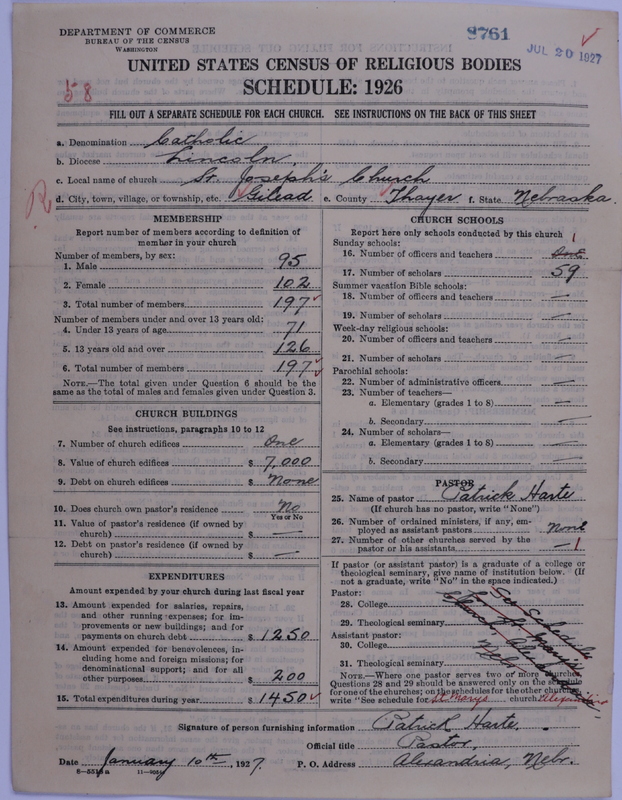 DEPARTMENT OF COMMERCE
BUREAU OF THE CENSUS
WASHINGTON
8761
JUL 20 1927
UNITED STATES CENSUS OF RELIGIOUS BODIES
58
SCHEDULE: 1926
FILL OUT A SEPARATE SCHEDULE FOR EACH CHURCH. SEE INSTRUCTIONS ON THE BACK OF THIS SHEET
a. Denomination Catholic
b. Diocese Lincoln,
c. Local name of church St. Joseph's Church
d. City, town, village, or township, etc. Gilead e. County Thayer f. State Nebraska.
R
MEMBERSHIP
Report number of members according to definition of
member in your church
Number of members, by sex:
1. Male 95
2. Female 102
3. Total number of members 197
Number of members under and over 13 years old:
4. Under 13 years of age 71
5. 13 years old and over 126
6. Total number of members 197
NOTE.—The total given under Question 6 should be the
same as the total of males and females given under Question 3.
CHURCH BUILDINGS
See instructions, paragraphs 10 to 12
7. Number of church edifices One
8. Value of church edifices $ 7,000
9. Debt on church edifices $ None
10. Does church own pastor's residence No
Yes or No
11. Value of pastor's residence (if owned by
church) $ —
12. Debt on pastor's residence (if owned by
church) $ —
EXPENDITURES
Amount expended by your church during last fiscal year
13. Amount expended for salaries, repairs,
and other running expenses; for im-
provements or new buildings; and for
payments on church debt $ 1250
14. Amount expended for benevolences, in-
cluding home and foreign missions; for
denominational support; and for all
other purposes $ 200
15. Total expenditures during year $ 1450
CHURCH SCHOOLS
Report here only schools conducted by this church
Sunday schools: 1
16. Number of officers and teachers One
17. Number of scholars 59
Summer vacation Bible schools:
18. Number of officers and teachers —
19. Number of scholars —
Week-day religious schools:
20. Number of officers and teachers —
21. Number of scholars —
Parochial schools:
22. Number of administrative officers —
23. Number of teachers—
a. Elementary (grades 1 to 8) —
b. Secondary —
24. Number of scholars—
a. Elementary (grades 1 to 8) —
b. Secondary —
PASTOR
25. Name of pastor Patrick Harte
(If church has no pastor, write "None")
26. Number of ordained ministers, if any, em-
ployed as assistant pastors None
27. Number of other churches served by the
pastor or his assistants — 1
If pastor (or assistant pastor) is a graduate of a college or
theological seminary, give name of institution below. (If
not a graduate, write "No" in the space indicated.)
Pastor:
28. College
See Schedule
29. Theological seminary
Assistant pastor:
30. College
31. Theological seminary
NOTE.—Where one pastor serves two or more churches
Questions 28 and 29 should be answered only on the schedule
for one of the churches; on the schedules for the other churches
write "See schedule for St. Marys church, Alexandria
Signature of person furnishing information Patrick Harte.
Official title Pastor,
Date January 10th, 1927. P. O. Address Alexandria, Nebr.
8—5518a 11—9034